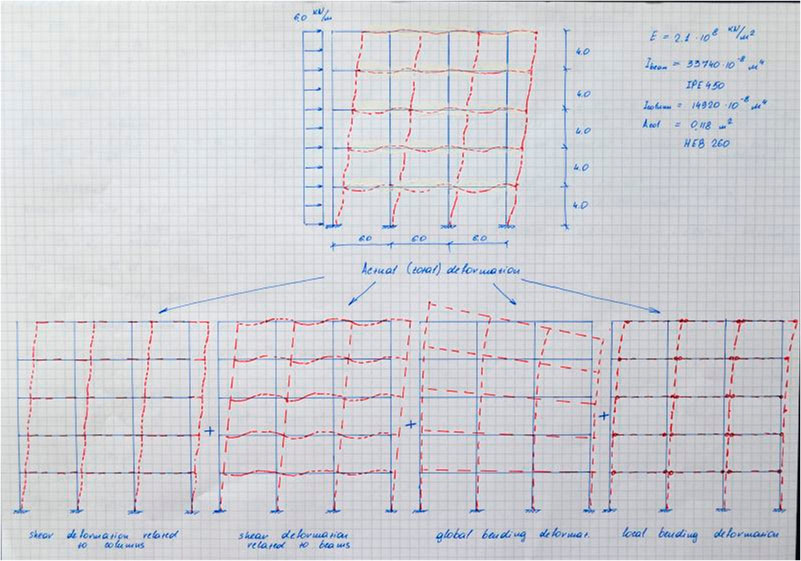 6.0 KN/m
E = 2.1 · 10⁸ KN/m²
4.0
Ibeam = 33740 · 10⁻⁸ m⁴
IPE 450
4.0
Icolumn = 14920 · 10⁻⁸ m⁴
4.0
Acol = 0,118 m²
HEB 260
4.0
4.0
6.0 6.0 6.0
Actual (total) deformation
+ + +
shear deformation related
to columns
shear deformation
related to beams
global bending deformat.
local bending deformation